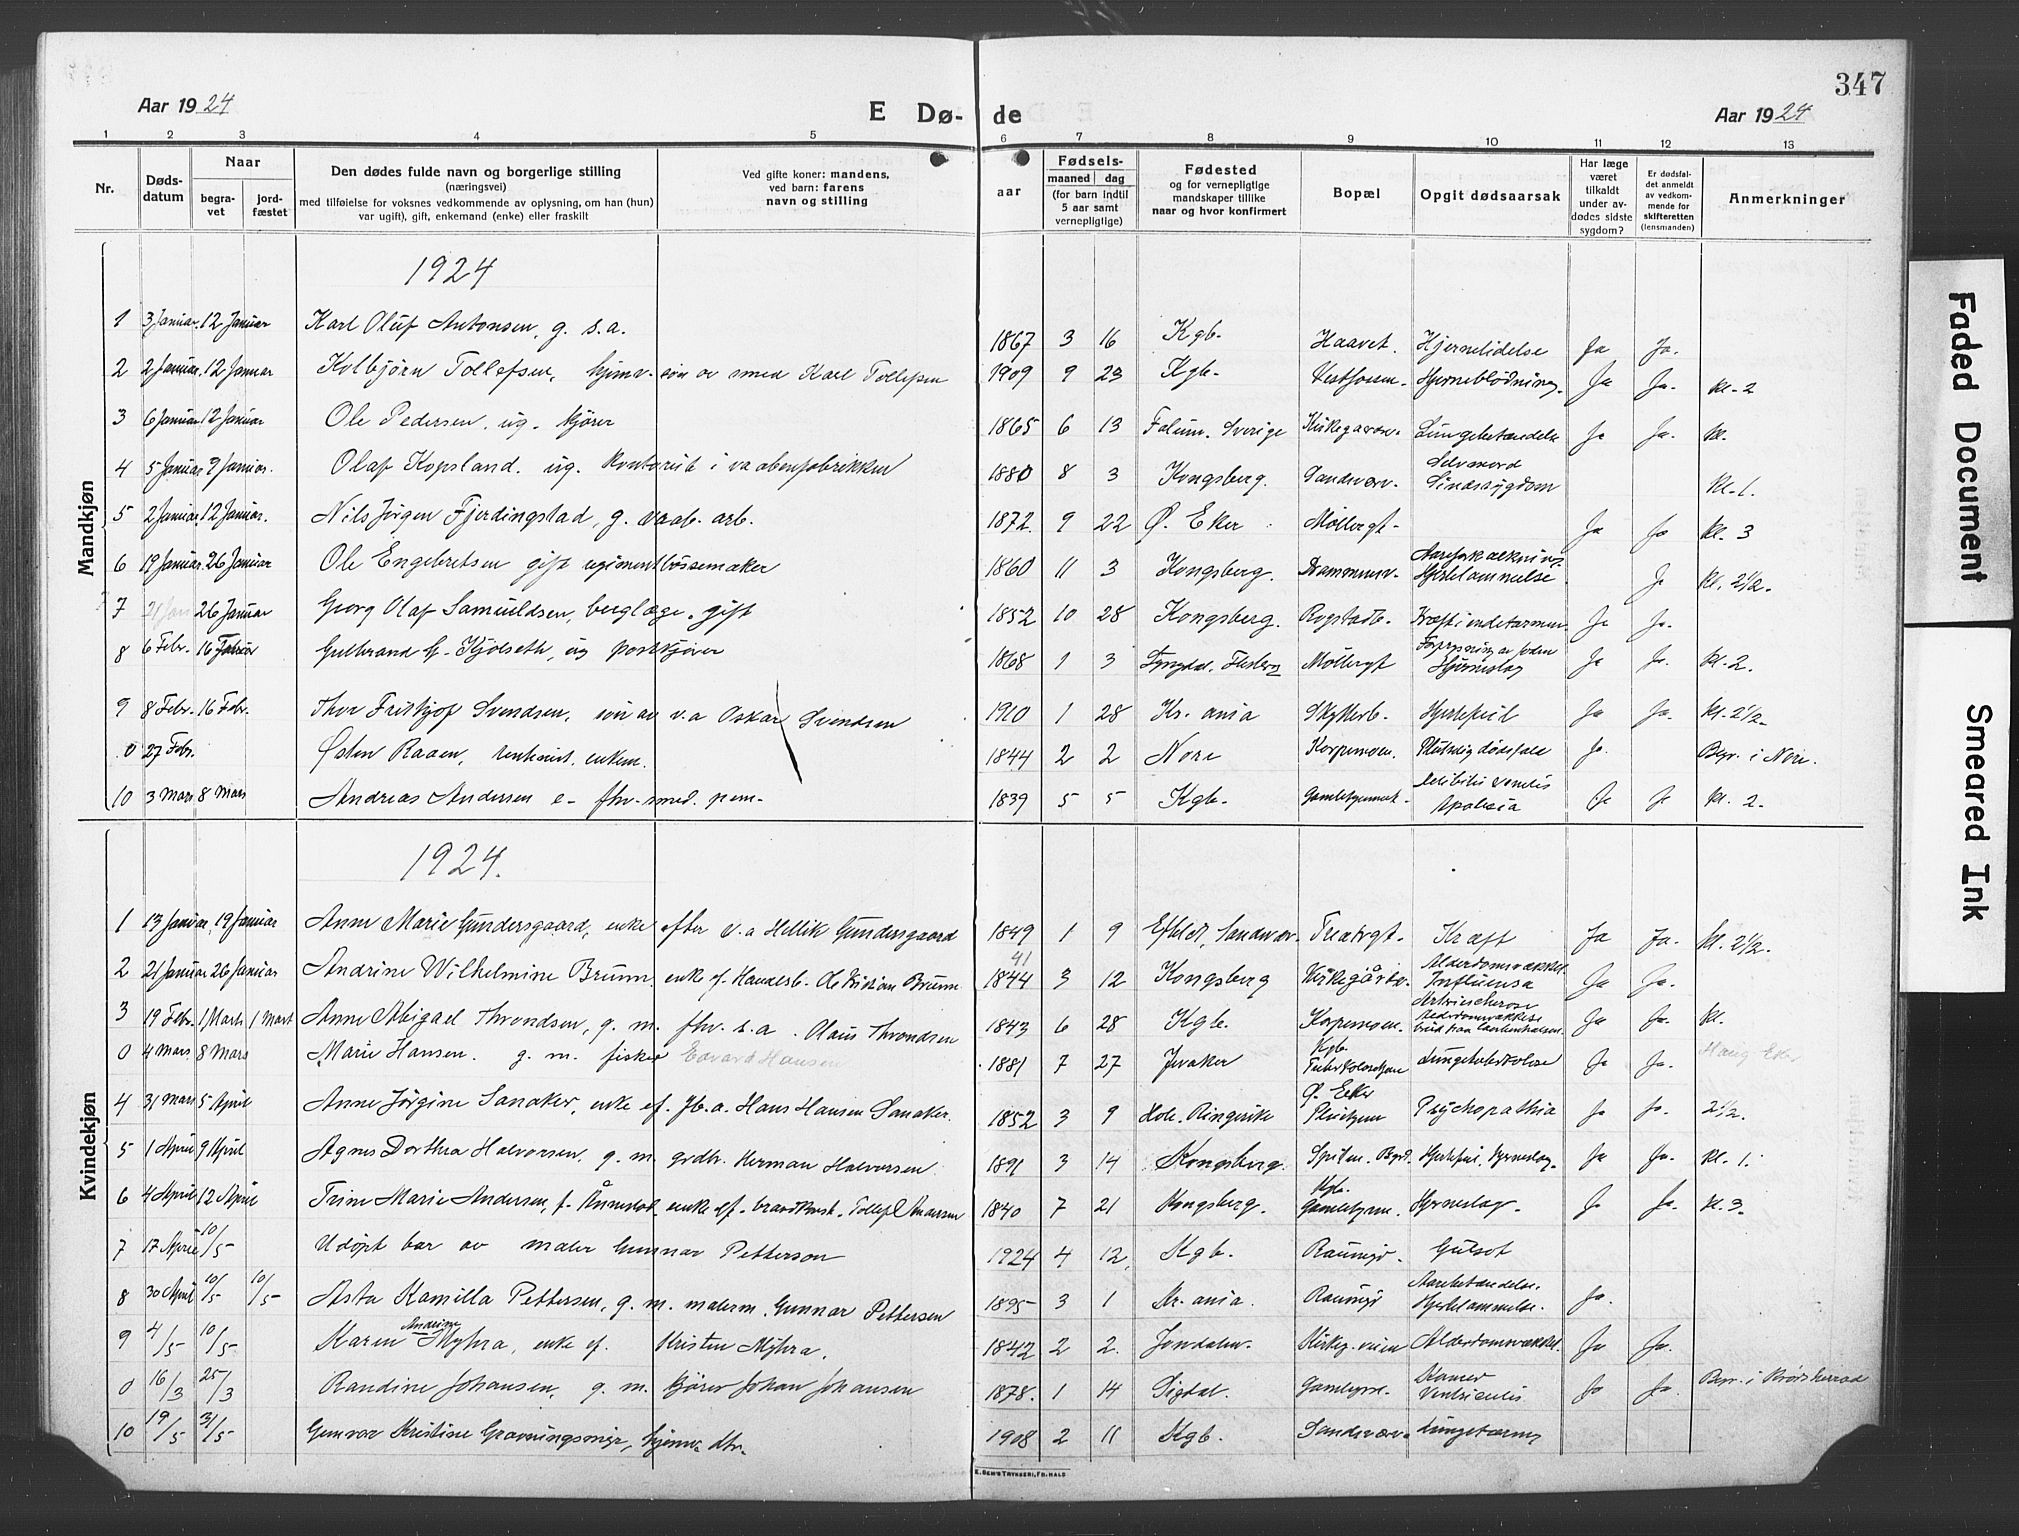 347
Aar 1924 E Dø- de Aar 1924
1 2 3 4 5 6 7 8 9 10 11 12 13
Nr. Døds-datum Naar begra-vet jord-fæstet Den dødes fulde navn og borgerlige stilling (næringsvei) med tilføielse for voksnes vedkommende av oplysning, om han (hun) var ugift), gift, enkemand (enke) eller fraskilt Ved gifte koner: mandens, ved barn: farens navn og stilling aar Fødsels- maaned dag (for barn indtil 5 aar samt vernepligtige) Fødested og for vernepligtige mandskaper tillike naar og hvor konfirmert Bopæl Opgit dødsaarsak Har læge været tilkaldt under av-dødes sidste sygdom? Er dødsfal-det anmeldt av vedkom-mende for skifteretten (lensmanden) Anmerkninger
Mandkjøn
1924
1 3 Januar. 12 Januar Karl Oluf Antonsen, g. s.a. 1867 3 16 Kgb. Haavet. Hjernelidelse Ja Ja.
2 2 Januar. 12 Januar Kolbjørn Tollefsen, hjemv. søn av smed Karl Tollefsen 1909 9 23 Kgb. Vestfossen. Hjerneblødning. Ja Ja. Kl. 2
3 6 Januar 12 Januar Ole Pedersen. ug. kjører 1865 6 13 Falun. Sverige Lungebetændelse Ja Ja. Kl.
4 5 Januar 9 Januar. Olaf Kopsland. ug. kontorist i vaabenfabrikken 1880 8 3 Kongsberg. Sandsværv. Selvmord Sindssygdom Kl. 1.
5 2 Januar 12 Januar. Nils Jørgen Fjerdingstad, g. vaab. arb. 1872. 9 22 Ø. Eker Møllergt. Ja Ja Kl. 3
6 19 Januar. 26 Januar Ole Engebretsen gift regiment bøssemaker 1860 11 3 Kongsberg. Drammensv. Aareforkalkning. Hjertelammelse. Ja Kl. 2½.
7 21 Jan 26 Januar Georg Olaf Samuelsen, berglæge. gift 1852 10 28 Kongsberg. Rogstadb. Kræft i endetarmen. Ja Ja.
8 6 Febr. 16 Februar Gulbrand G. Kjølseth, ug postkjører 1868 1 3 Møllergt Hjerneslag Ja Ja. Kl. 2.
9 8 Febr. 16 Febr. Thor Fritkjof Svendsen, søn av v.a Oskar Svendsen 1910 1 28 Kr. ania Skytterb. Hjertefeil Ja Ja. Kl. 2½.
0 27 Febr. Østen Raaen, enkem. 1844 2 2 Nore Korpemoen. Plutselig dødsfald Ja. Begr. i Nore.
10 3 Mars 8 Mars Andreas Andersen e. fhv. smed. pen. 1839 5 5 Kgb. Apolexia Ja Ja Kl. 2.
Kvindekjøn
1924.
1 13 Januar. 19 Januar Anne Marie Gundersgaard, enke efter v.a Hellik Gundersgaard 1849 1 9 Efteløt, Sandsværv. Kræft Ja Ja. Kl. 2½.
2 21 Januar 26 Januar Andrine Wilhelmine Bruun, enke ef. Handelsb. Chr Kristian Bruun 41 1844 3 12 Kongsberg Kirkegårdsv. Alderdomssvækkel. Influensa Ja Ja.
3 19 Febr. 1 Mars 1 Mart Anne Abigael Throndsen, g. m. fhv. s.a. Olaus Throndsen 1843 6 28 Kgb. Korpemoen. Alderdomsvækkelse Ja Ja. Kl.
0 4 Mars. 8 Mars Marie Hansen. g. m. fisker Edvard Hansen 1881 7 27 Jevaker Kgb. Tuberkulosehjem Lungetuberkulose Ja Ja. Haug Eker
4 31 Mars 5 April Anne Jørgine Sanaker, enke ef. Jb.a. Hans Hansen Sanaker. 1852 3 9 Hole. Ringerike Ø. Eker Pleiehjem Psychopathia Ja Ja. 2½.
5 1 April 9 April Agnes Dorthea Halvorsen, g. m. grdbr. Herman Halvorsen 1891 3 14 Kongsberg. Hjertefeil. Hjerneslag. Ja Ja. Kl. 1.
6 4 April 12 April Trine Marie Andersen, f. enke ef. Tollef Andersen 1840 7 21 Kongsberg. Kgb. Gamlehjem. Hjerneslag. Ja Ja. Kl. 3.
7 17 April 10/5 Udøpt bar av maler Gunnar Petterson 1924 4 12, Kgb. Raumyr. Gulsot
8 30 April 10/5 10/5 Asta Kamilla Pettersen, g. m. malerm. Gunnar Pettersen 1895 3 1 Kr. ania. Raumyr Aarebetændelse. Hjertelammelse. Ja.
9 4/5 10/5 Karen Andrine Myhra, enke ef. Kristen Myhra. 1842 2 2. Jondalen. Kirkeg. veien Alderdomsvækkel. Ja Ja.
0 16/3 25/3 Randine Johansen, g. m. kjører Johan Johansen 1878. 1 14 Sigdal. Ventriculis Ja Ja. Begr. i Krødsherrad
10 19/5 31/5 Gunvor Kristine Gravningsmyr, hjemv. dtr. 1908 2 11 Kgb. Sandsværv. Lungetæring
E. SEM'S TRYKKERI, FR.HALD
Faded Document
Smeared Ink